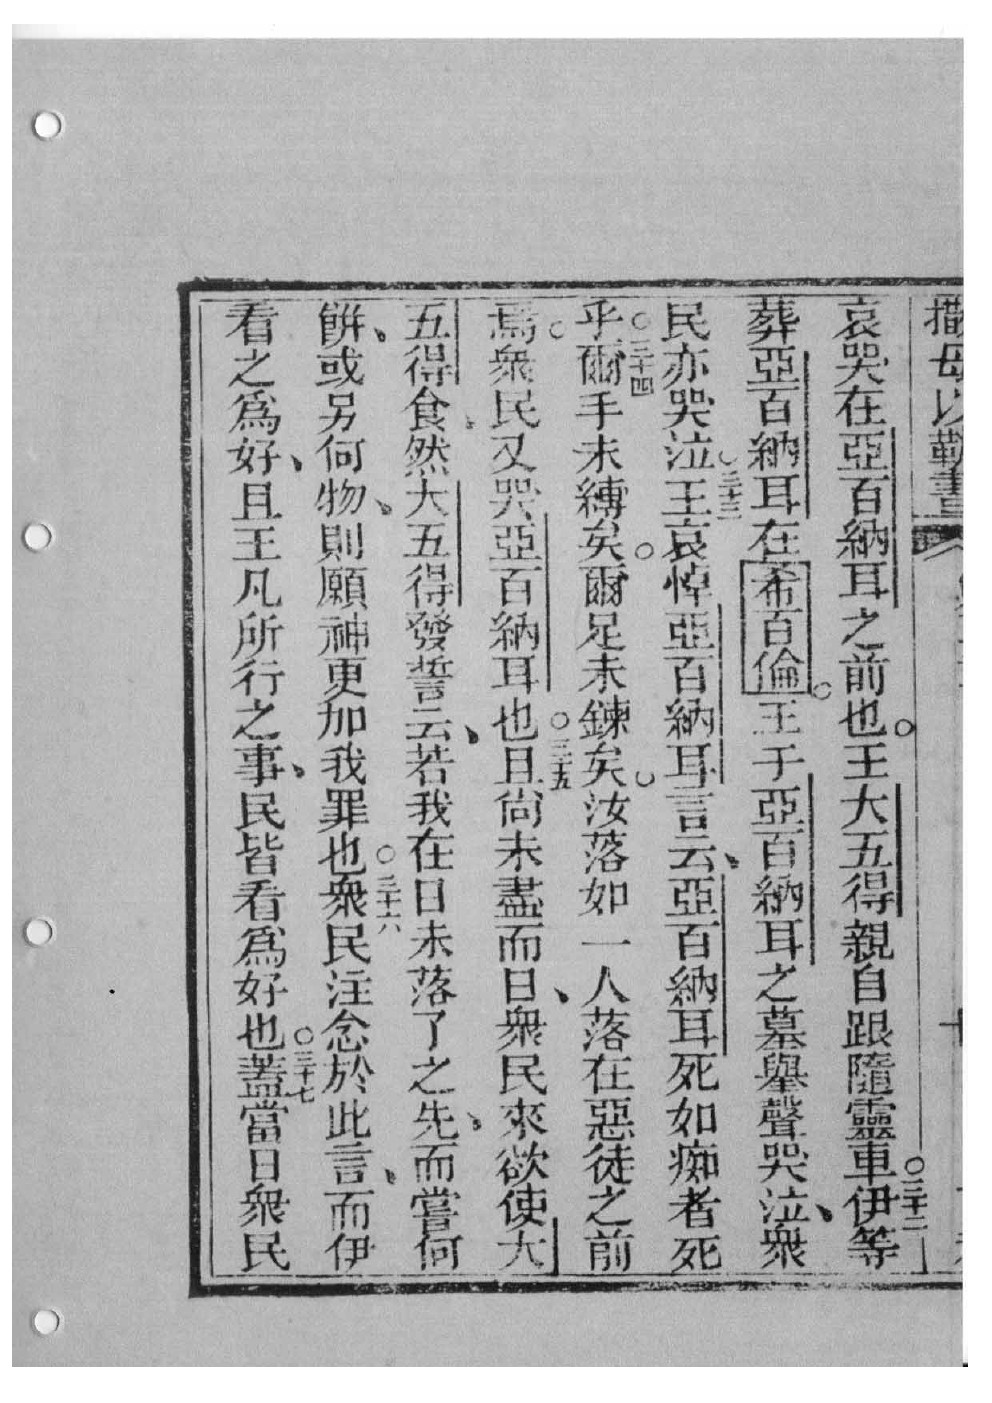 撒母以勒書
哀哭在亞百納耳之前也。王大五得親自跟隨靈車○三十二伊等
葬亞百納耳在希百倫。王于亞百納耳之墓擧聲哭泣、衆
民亦哭泣○三十三王哀悼亞百納耳言云、亞百納耳死如痴者死
乎○三十四爾手未縛矣。爾足未鍊矣。汝落如一人落在惡徒之前
焉。衆民又哭亞百納耳也○三十五且尚未盡而日、衆民來欲使大
五得食、然大五得發誓云、若我在日未落了之先、而嘗何
餅、或另何物、則願神更加我罪也○三十六衆民注念於此言、而伊
看之爲好、且王凡所行之事、民皆看爲好也○三十七蓋當日衆民